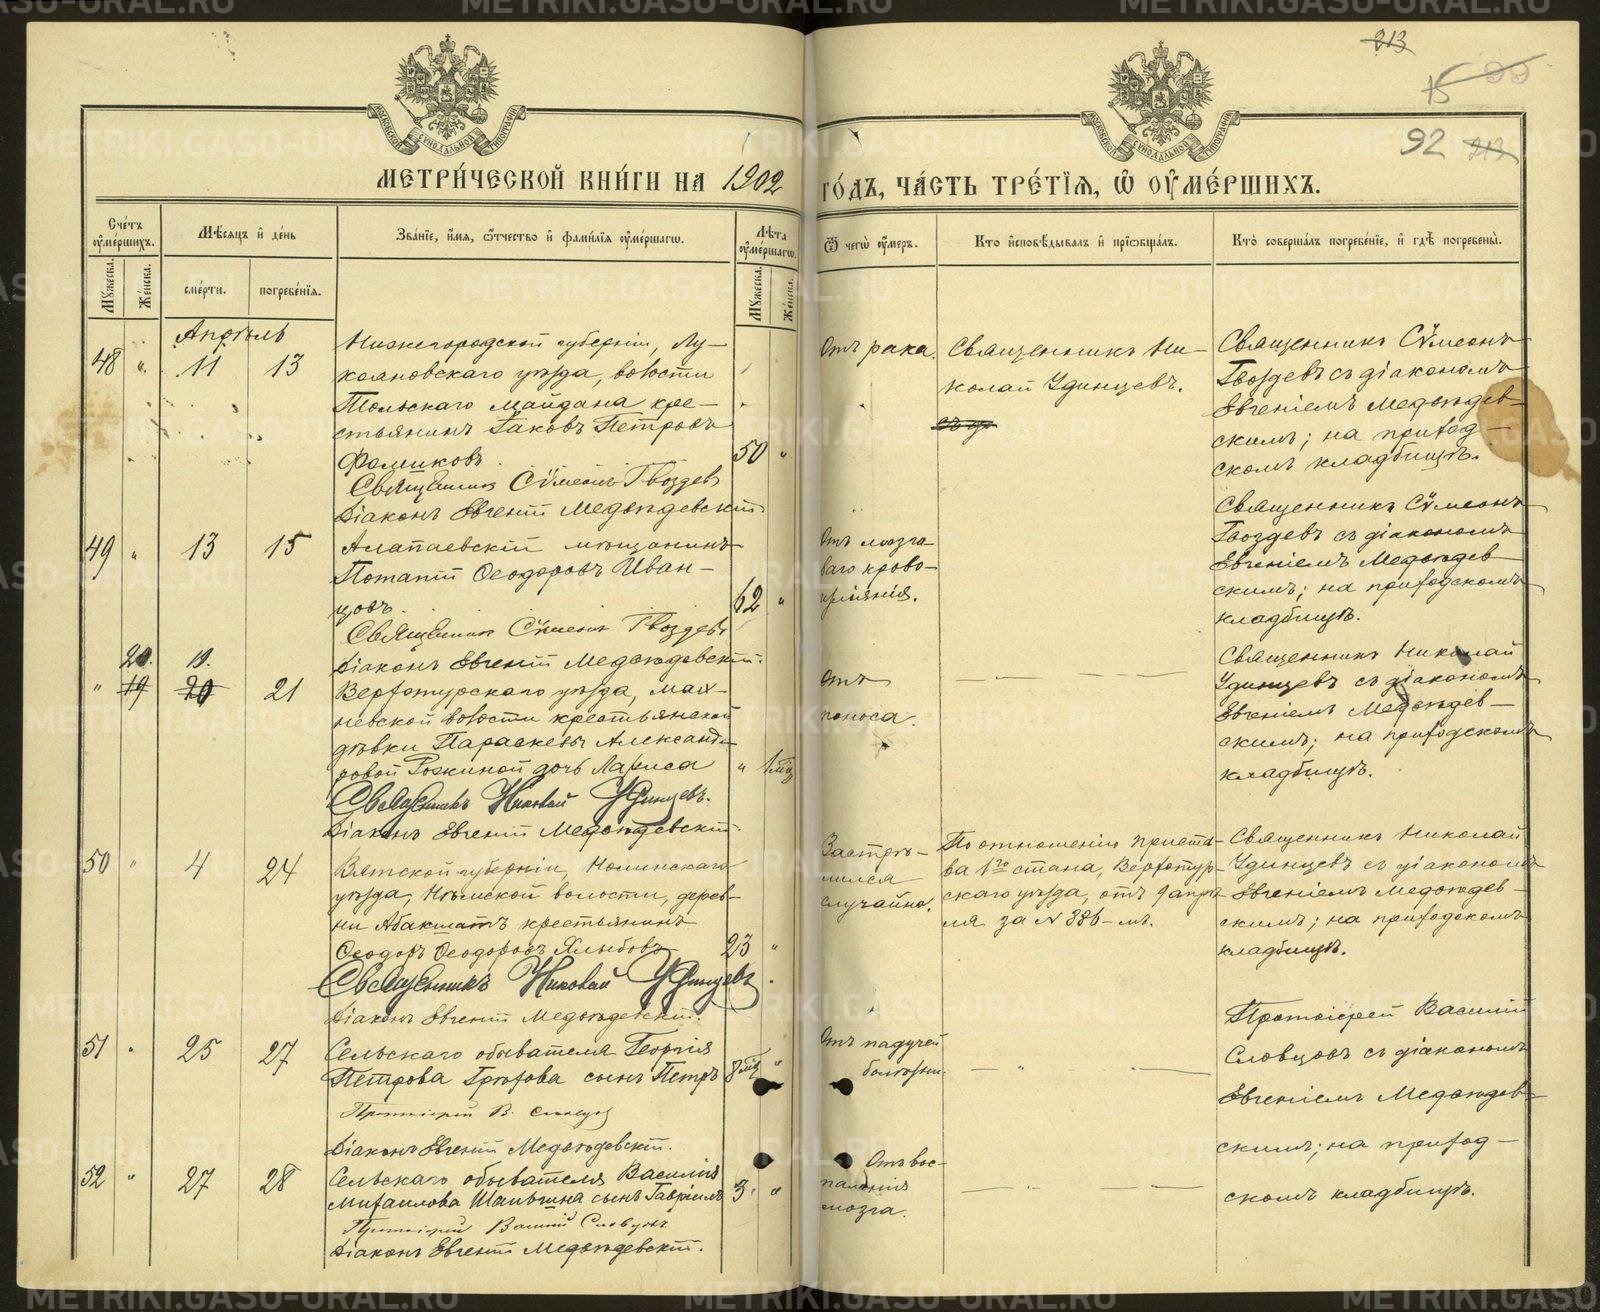 213
15 99
92 213
МОСКОВСКОЙ СѴНОДАЛЬНОЙ ТИПОГРАФІИ
МОСКОВСКОЙ СѴНОДАЛЬНОЙ ТИПОГРАФІИ
МЕТРИ́ЧЕСКОЙ КНИ́ГИ НА 1902 ГО́ДЪ, ЧА́СТЬ ТРЕ́ТІЯ, Ѡ҆ ОУ҆МЕ́РШИХЪ.
Сче́тъ оу҆ме́ршихъ.
Мѣ́сяцъ и҆ де́нь
Зва́ніе, и҆́мя, ѻ҆́тчество и҆ фами́лія оу҆ме́ршагѡ.
Лѣ́та оу҆ме́ршагѡ.
Ѿ чегѡ̀ оу҆́меръ.
Кто̀ и҆сповѣ́дывалъ и҆ пріѡбща́лъ.
Кто̀ соверша́лъ погребе́ніе, и҆ гдѣ̀ погребены̀.
Му́жеска.
Же́нска.
сме́рти.
погребе́нія.
Му́жеска.
Же́нска.
Апрѣль
48 " 11 13
Нижегородской губерніи, Лу-
кояновскаго уѣзда, волости
Тольскаго Майдана кре-
стьянинъ Іаковъ Петровъ
Фомиковъ. 50 "
Священник Сѷмеонъ Гвоздев
Діаконъ Евгеній Медвѣдевскій.
Отъ рака.
Священникъ Ни-
колай Удинцевъ.
Священникъ Сѷмеонъ
Гвоздевъ съ діакономъ
Евгеніемъ Медвѣдев-
скимъ; на приход-
скомъ кладбищѣ.
49 " 13 15
Алапаевскій мѣщанинъ
Потапій Ѳеодоровъ Иван-
цовъ. 62 "
Священник Сѷмеонъ Гвоздевъ
Діаконъ Евгеній Медвѣдевскій.
Отъ мозго-
ваго крово-
изліянія.
Священникъ Сѷмеонъ
Гвоздевъ съ діакономъ
Евгеніемъ Медвѣдев
скимъ; на приходскомъ
кладбищѣ.
20. 19.
" 19 20 21
Верхотурскаго уѣзда, Мах-
невской волости крестьянской
дѣвки Параскевы Александ-
ровой Рожкиной дочь Лариса " 1 мѣс
Священникъ Николай Удинцевъ.
Діаконъ Евгеній Медвѣдевскій.
Отъ
поноса.
Священникъ Николай
Удинцевъ съ діакономъ
Евгеніемъ Медвѣдев-
скимъ; на приходскомъ
кладбищѣ.
50 " 4 24
Вятской губерніи, Нолинскаго
уѣзда, Нѣмской волости, дерев-
ни Абакшатъ крестьянинъ
Ѳеодоръ Ѳеодоровъ Хлыбовъ 23 "
Священникъ Николай Удинцевъ
Діаконъ Евгеній Медвѣдевскій.
Застрѣ-
лился
случайно.
По отношенію приста-
ва 1го стана, Верхотур-
скаго уѣзда, отъ 9 апрѣ-
ля за № 386-мъ.
Священникъ Николай
Удинцевъ съ діакономъ
Евгеніемъ Медвѣдев-
скимъ; на приходскомъ
кладбищѣ.
51 " 25 27
Сельскаго обывателя Георгія
Петрова сынъ Петръ 8 мѣс "
Протоіерей В. Словцов
Діаконъ Евгеній Медвѣдевскій.
Отъ падучей
болѣзни.
Протоіерей Василій
Словцовъ съ діакономъ
Евгеніемъ Медвѣдев-
скимъ; на приход-
скомъ кладбищѣ.
52 " 27 28
Сельскаго обывателя Василія
Михаилова Шаньгина сынъ Гавріилъ 3 "
Протоіерей Василій Словцовъ
Діаконъ Евгеній Медвѣдевскій.
Отъ вос-
паленія
мозга.
METRIKI.GASO-URAL.RU